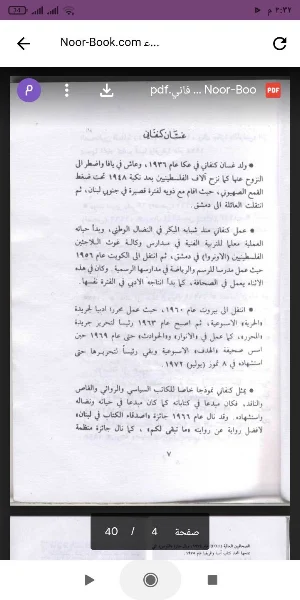 ٢:٣٢ م
Noor-Book.com ...ء
Noor-Boo ... فاني.pdf
PDF
P
غسّان كنفاني
ولد غسان كنفاني في عكا عام ١٩٣٦، وعاش في يافا واضطر الى
النزوح عنها كما نزح آلاف الفلسطينيين بعد نكبة ١٩٤٨ تحت ضغط
القمع الصهيوني، حيث اقام مع ذويه لفترة قصيرة في جنوبي لبنان، ثم
انتقلت العائلة الى دمشق.
عمل كنفاني منذ شبابه المبكر في النضال الوطني، وبدأ حياته
العملية معلما للتربية الفنية في مدارس وكالة غوث اللاجئين
الفلسطينيين (الاونروا) في دمشق، ثم انتقل الى الكويت عام ١٩٥٦
حيث عمل مدرسا للرسم والرياضة في مدارسها الرسمية. وكان في هذه
الاثناء يعمل في الصحافة، كما بدأ انتاجه الادبي في الفترة نفسها.
انتقل الى بيروت عام ١٩٦٠، حيث عمل محررا ادبيا لجريدة
«الحرية» الاسبوعية، ثم اصبح عام ١٩٦٣ رئيسا لتحرير جريدة
«المحرر» كما عمل في «الانوار» و«الحوادث» حتى عام ١٩٦٩ حين
اسس صحيفة «الهدف» الاسبوعية وبقي رئيساً لتحريرها حتى
استشهاده في ٨ تموز (يوليو) ١٩٧٢.
يمثل كنفاني نموذجا خاصا للكاتب السياسي والروائي والقاص
والناقد، فكان مبدعا في كتاباته كما كان مبدعا في حياته ونضاله
واستشهاده. وقد نال عام ١٩٦٦ جائزة «اصدقاء الكتاب في لبنان»
لافضل رواية عن روايته «ما تبقى لكم»، كما نال جائزة منظمة
٧
صفحة 4 / 40